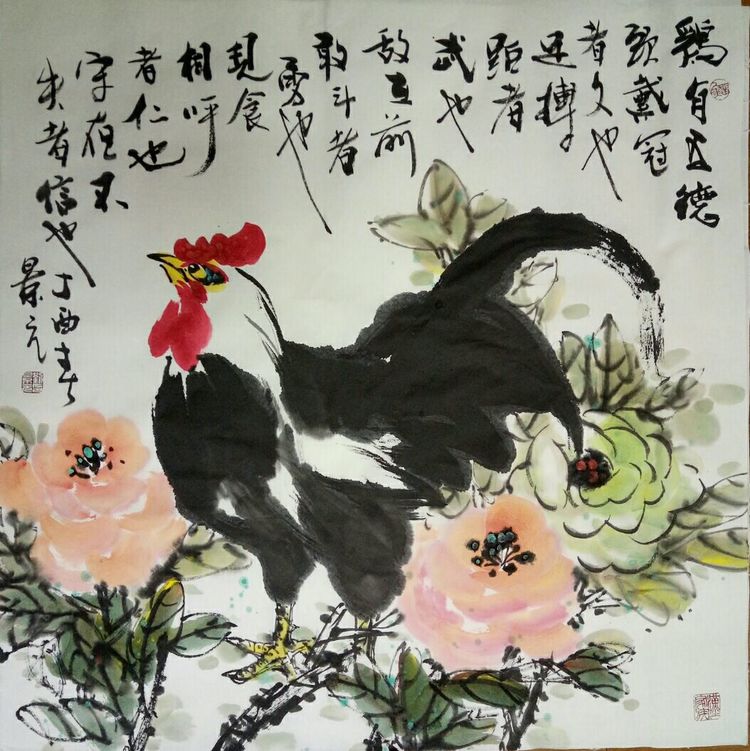 鷄有五德
頭戴冠
者文也
足搏
距者
武也
敌在前
敢斗者
勇也
現食
相呼
者仁也
守夜不
失者信也
丁酉春
景元